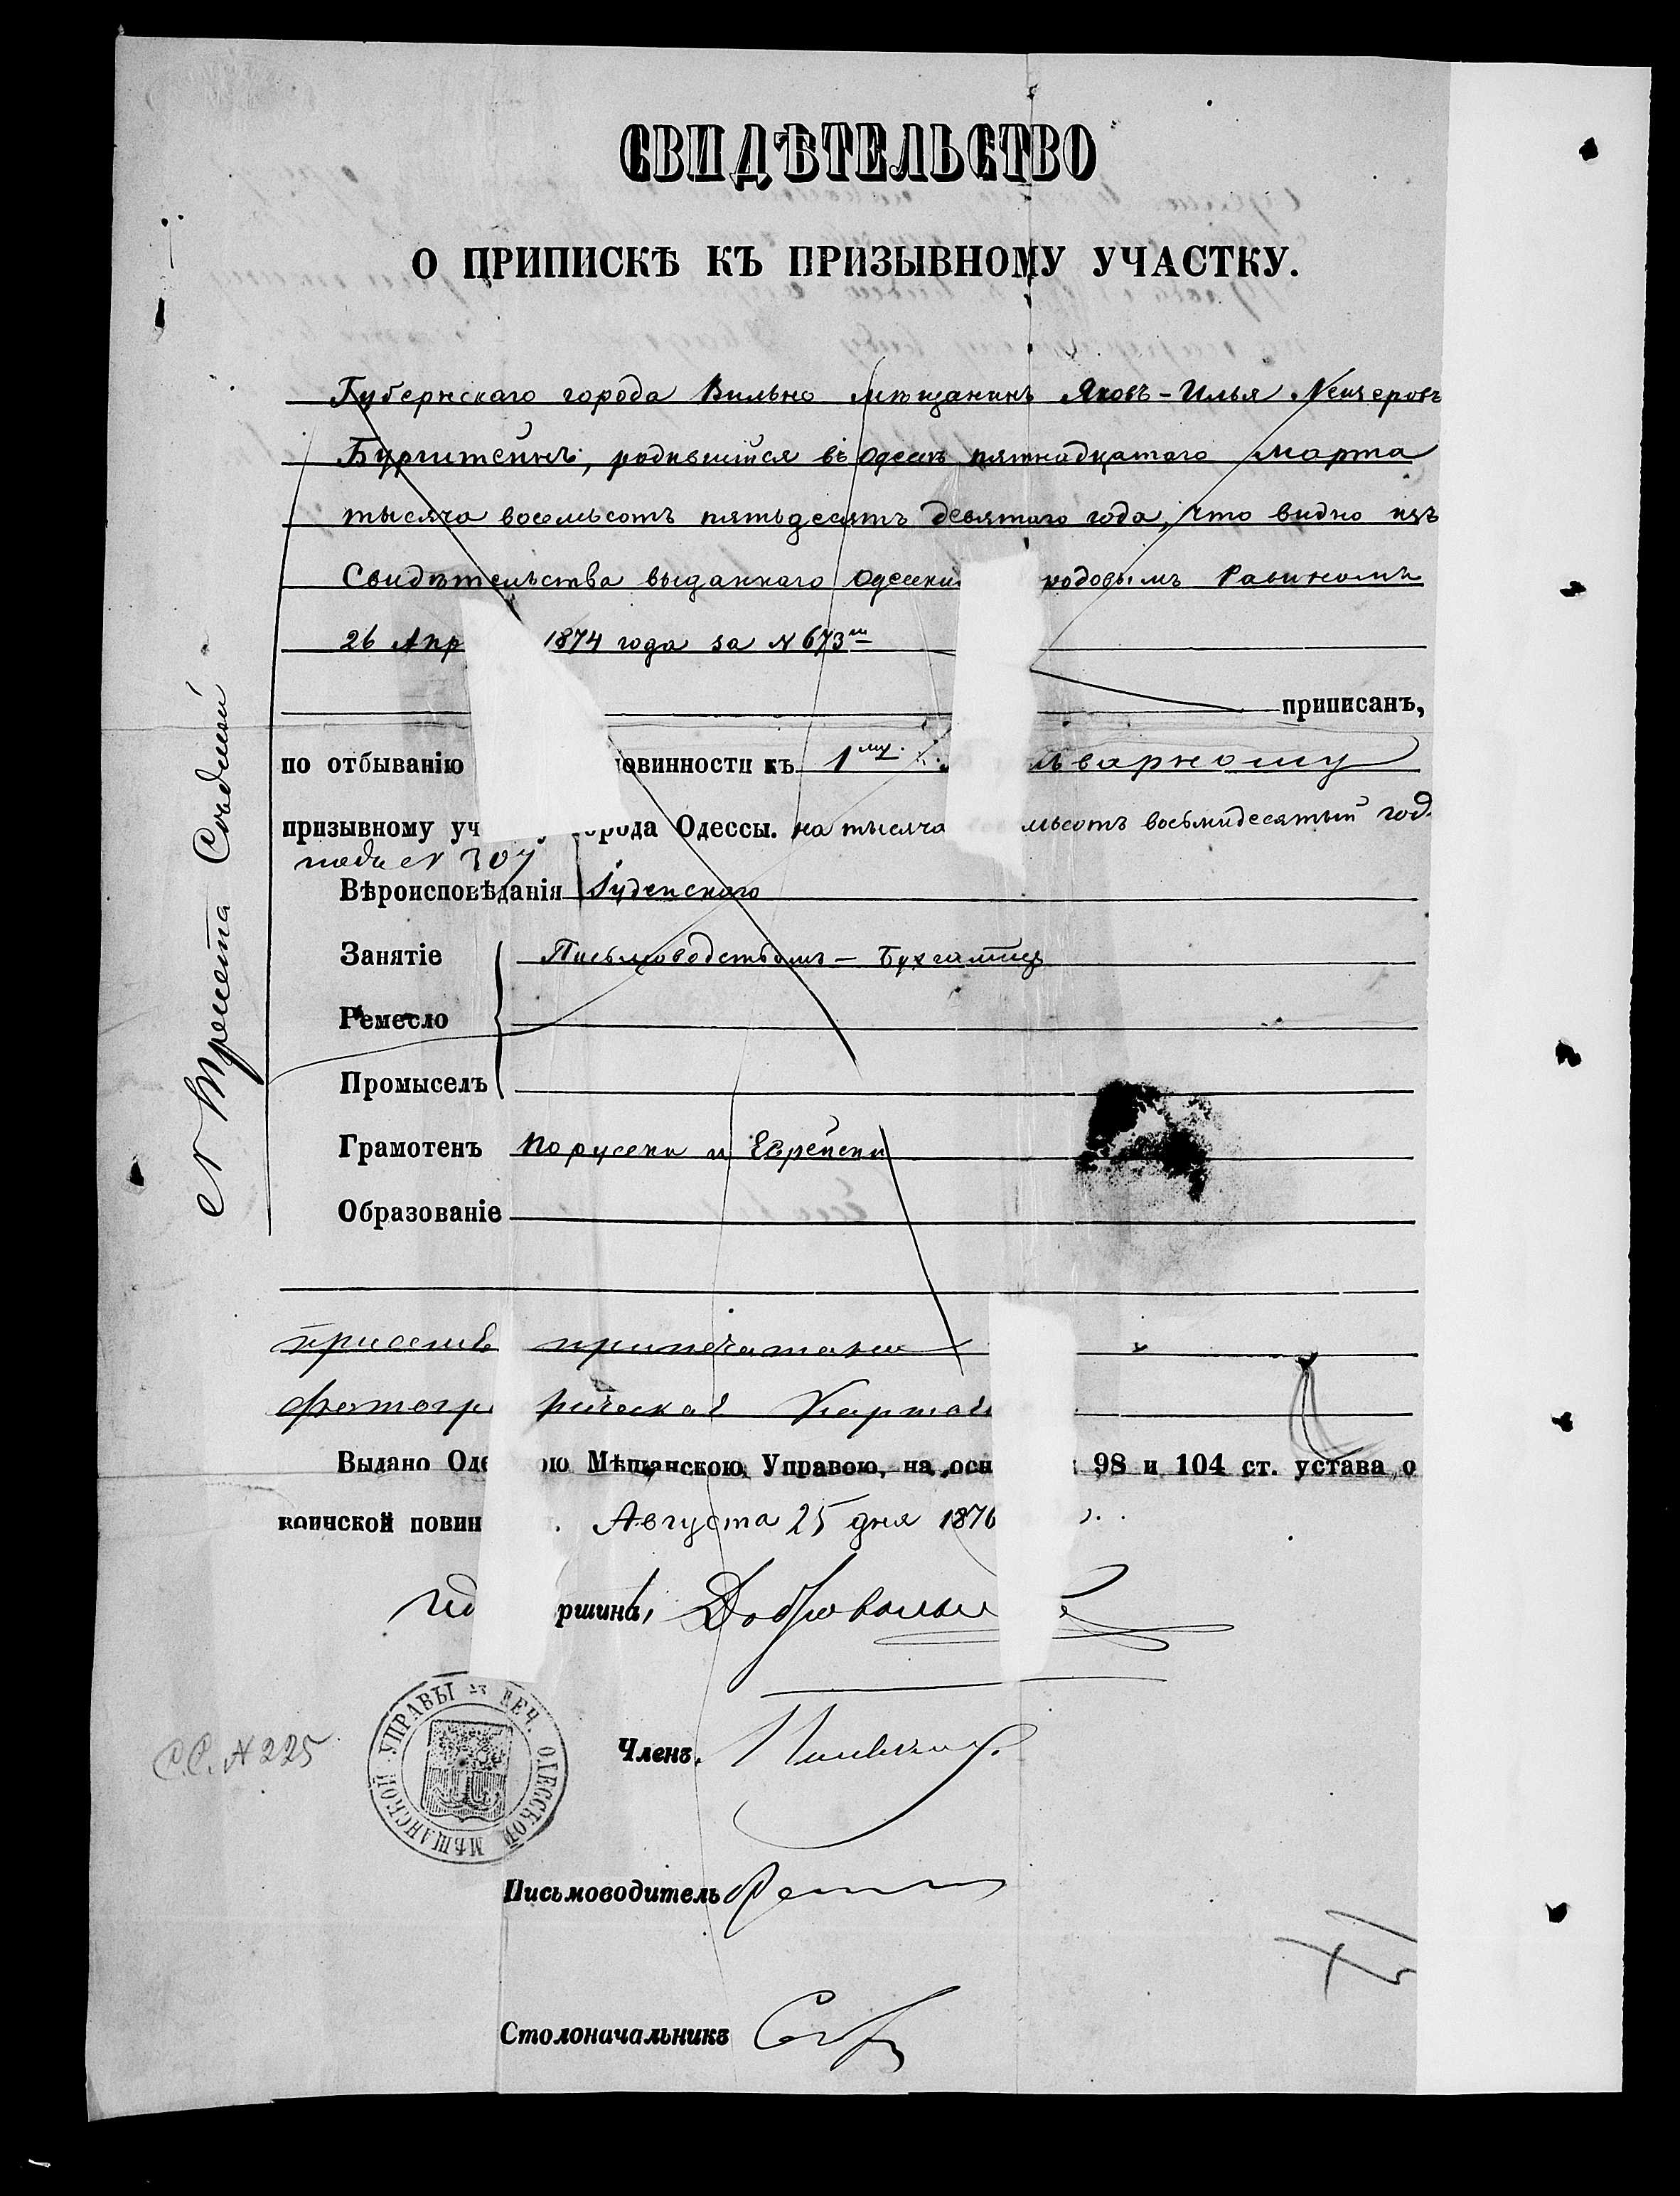 СВИДѢТЕЛЬСТВО
О ПРИПИСКѢ КЪ ПРИЗЫВНОМУ УЧАСТКУ.
Губернскаго города Вильно мѣщанинъ Яковъ-Илья
Бурштейнъ, родившійся въ Одессѣ пятнадцатаго марта
тысяча восемьсотъ пятьдесятъ девятаго года, что видно изъ
Свидѣтельства выданнаго Одесски родовымъ Равиномъ
26 Апр 1874 года за N 673
приписанъ,
по отбыванію овинности къ 1му варному
призывному уч города Одессы. на тысяча мьсотъ восьмидесятый год
подъ N 307
Вѣроисповѣданія Іудейскаго
Занятіе Письмоводствомъ –
Ремесло
Промыселъ
Грамотенъ По русски и Еврейски
Образованіе
при семъ припечатана
фотогр ическая карто
Выдано Оде ою Мѣщанскою Управою, на осн 98 и 104 ст. устава о
воинской повин . Августа 25 дня 1876
ршина,
Членъ,
Письмоводитель
Столоначальникъ
N Триста Седьмой
С.С. N 225
ПЕЧ. ОДЕССКОЙ МѢЩАНСКОЙ УПРАВЫ